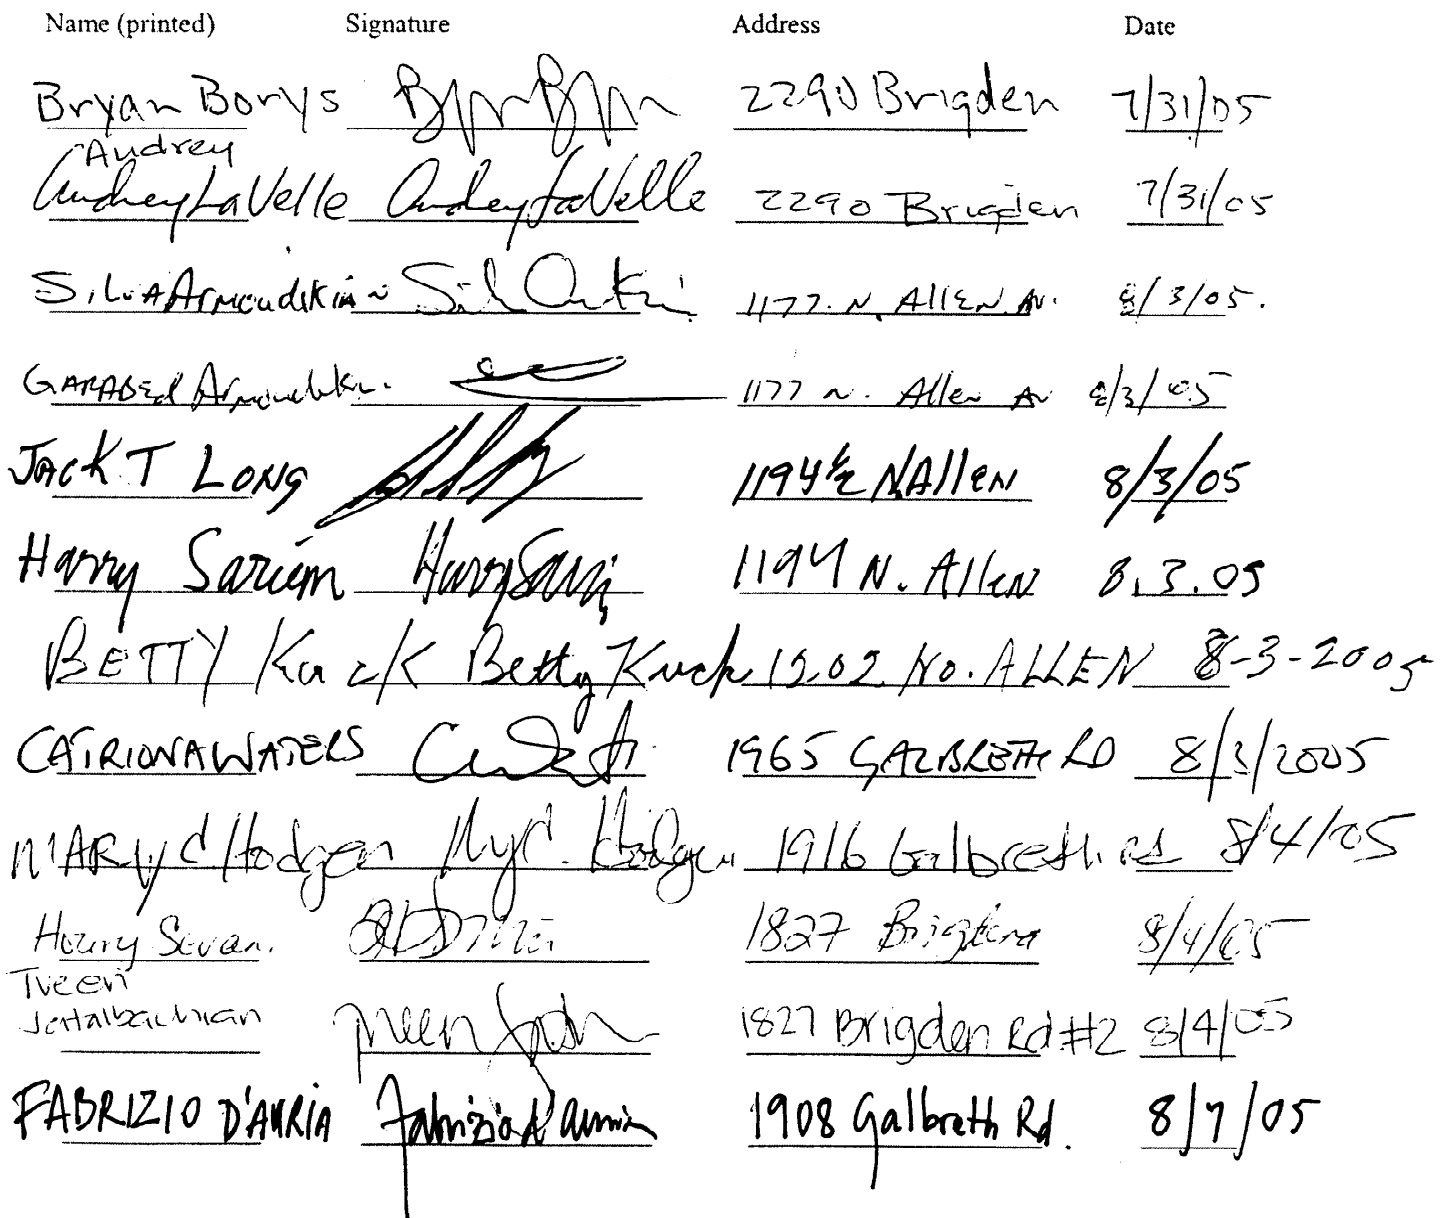 Name (printed) Signature Address Date
Bryan Borys 2290 Brigden 7/31/05
Audrey
Audrey LaVelle Audrey LaVelle 2290 Brigden 7/31/05
Silva Armoudikian 1177. N. Allen Av. 8/3/05.
Garabed 1177 N. Allen Av 8/3/05
Jack T Long 1194 1/2 N Allen 8/3/05
Harry Sariem Harry 1194 N. Allen 8.3.05
BETTY Kuck Betty Kuck 1202 No. ALLEN 8-3-2005
CATRIONA WATERS 1965 GALBRETH RD 8/3/2005
MARY C Hodgen Mary C. Hodgen 1916 Galbreth Rd 8/4/05
Houry Sevan. 1827 Brigden 8/4/05
Tveen
1827 Brigden Rd #2 8/4/05
FABRIZIO D'AURIA Fabrizio D'Auria 1908 Galbreth Rd. 8/7/05